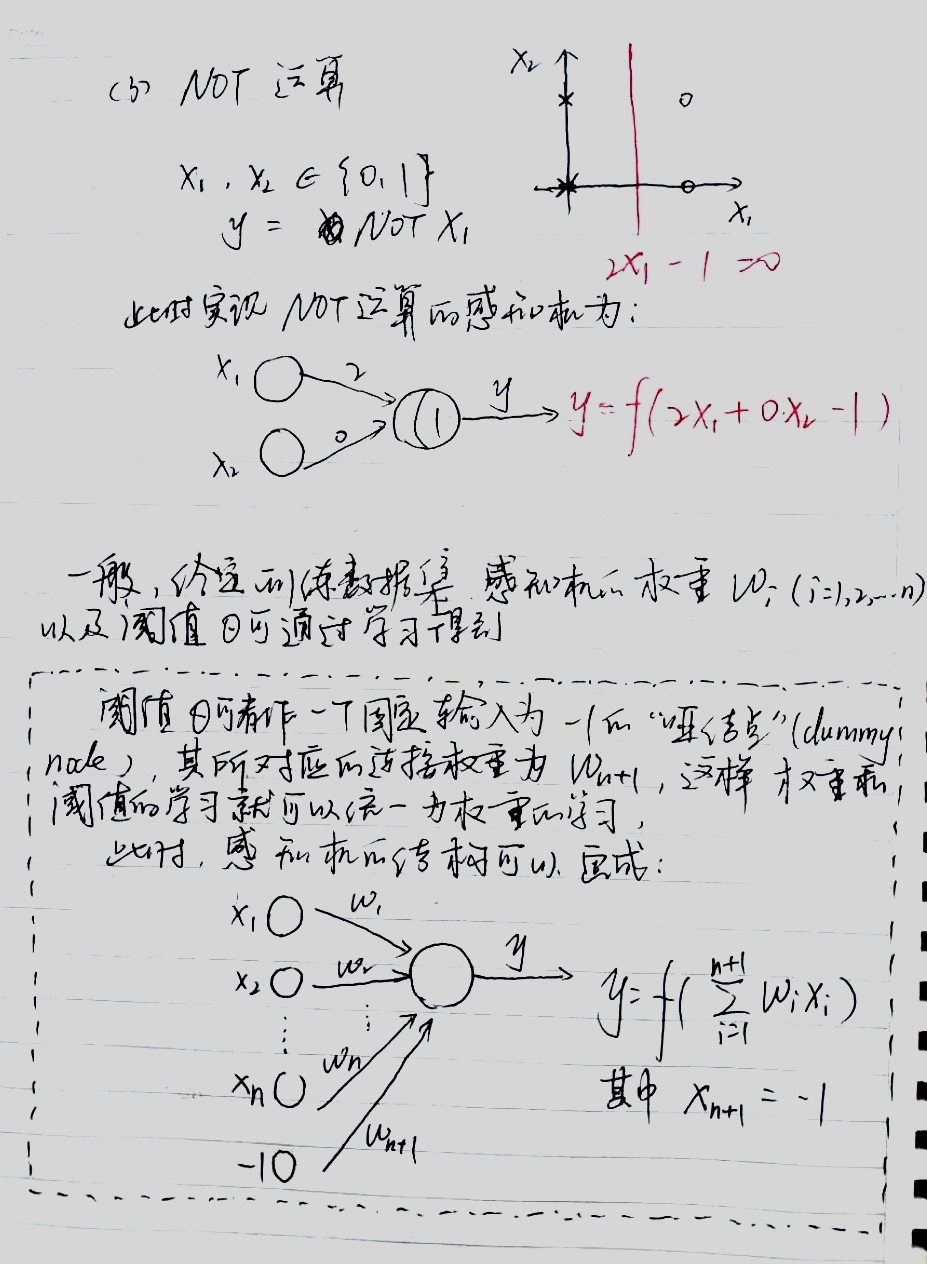 (3) NOT 运算
x₂
x₁, x₂ ∈ {0, 1}
x₁
y = NOT x₁
2x₁ - 1 = 0
此时实现 NOT 运算的感知机为:
x₁ 2
1 y y = f(2x₁ + 0·x₂ - 1)
x₂ 0
一般, 给定训练数据集 感知机的权重 wᵢ (i=1,2,...n)
以及阈值 θ可通过学习得到
阈值 θ可看作一个固定输入为 -1 的 “哑结点” (dummy
node), 其所对应的连接权重为 wₙ₊₁, 这样 权重和
阈值的学习就可以统一为权重的学习,
此时, 感知机的结构可以 画成:
x₁ w₁
x₂ w₂ y y = f( ∑ᵢ₌₁ⁿ⁺¹ wᵢxᵢ )
xₙ wₙ 其中 xₙ₊₁ = -1
-1 wₙ₊₁